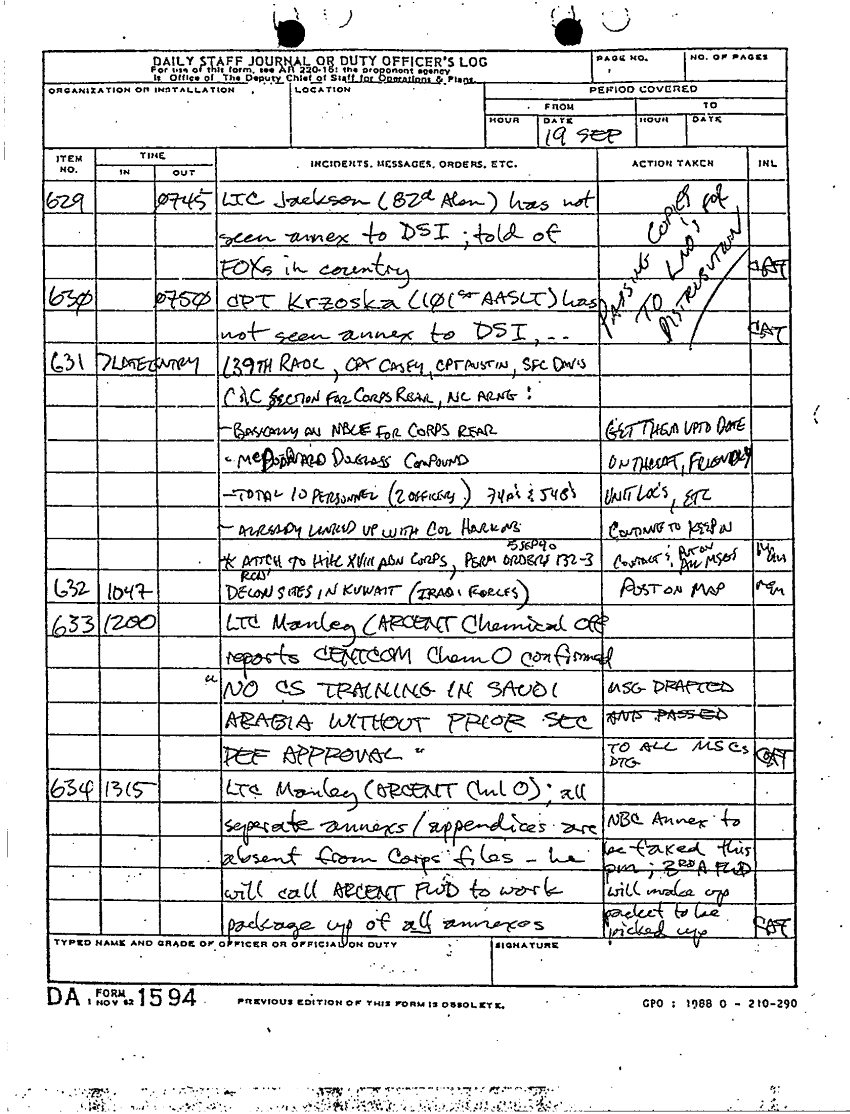 DAILY STAFF JOURNAL OR DUTY OFFICER'S LOG
For use of this form, see AR 220-15; the proponent agency
is Office of The Deputy Chief of Staff for Operations & Plans.
PAGE NO.
NO. OF PAGES
ORGANIZATION OR INSTALLATION
LOCATION
PERIOD COVERED
FROM
TO
HOUR
DATE
HOUR
DATE
19 SEP
ITEM NO.
TIME
IN
OUT
INCIDENTS, MESSAGES, ORDERS, ETC.
ACTION TAKEN
INL
629 0745 LTC Jackson (82d Abn) has not
seen annex to DSI; told of
FOXs in country
PASSING COPIES
TO LNO's for
DISTRIBUTION
CAT
630 0750 CPT Krzoska (101st AASLT) has
not seen annex to DSI, ...
CAT
631 LATE ENTRY 139TH RAOC, CPT CASEY, CPT AUSTIN, SFC DAVIS
SECTION FOR CORPS REAR, NC ARNG:
- BASICALLY AN NBCE FOR CORPS REAR GET THEM UPTO DATE
- DOUGLASS COMPOUND ON THREAT, FRIENDLY
- TOTAL 10 PERSONNEL (2 OFFICERS) 74D's & 54B's UNIT LOC'S, ETC
- ALREADY LINKED UP WITH COL CONTINUE TO KEEP IN
5 SEP 90
* ATTCH TO HHC XVIII ABN CORPS, PERM ORDERS 132-3 CONTACT; PUT ON ALL MSGS
632 1047 RCN/ DECON SITES IN KUWAIT (IRAQI FORCES) POST ON MAP
633 1200 LTC Manley (ARCENT Chemical Off
reports CENTCOM Chem O confirmed
"NO CS TRAINING IN SAUDI MSG DRAFTED
ARABIA WITHOUT PRIOR SEC AND PASSED
DEF APPROVAL" TO ALL MSCs
DTG
CAT
634 1315 LTC Manley (ARCENT Cml O); all
seperate annexs/appendices are NBC Annex to
absent from Corps files - he be faxed this
pm; 3RD A FWD
will call ARCENT FWD to work will make up
package up of all annexes packet to be
picked up
CAT
TYPED NAME AND GRADE OF OFFICER OR OFFICIAL ON DUTY
SIGNATURE
DA FORM 1 NOV 62 1594
PREVIOUS EDITION OF THIS FORM IS OBSOLETE.
GPO : 1988 O - 210-290